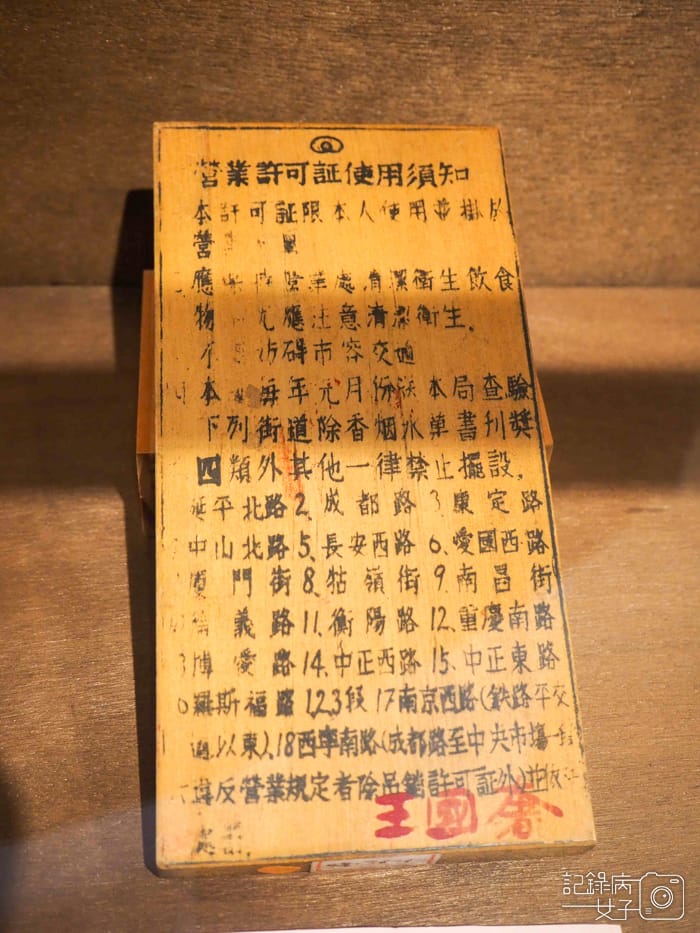 營業許可証使用須知
本許可証限本人使用並掛於
營
應 營業處清潔衛生飲食
物 尤應注意清潔衛生．
不 妨碍市容交通
本 每年元月份送本局查驗
下列街道除香烟水菓書刊獎
四類外其他一律禁止擺設．
延平北路2.成都路3.康定路
中山北路5.長安西路6.愛國西路
門街8.牯嶺街9.南昌街
義路11.衡陽路12.重慶南路
3博愛路14.中正西路15.中正東路
羅斯福路1,2,3段17南京西路(鉄路平交
道以東).18西寧南路(成都路至中央市場
違反營業規定者除吊銷許可証外)並依
王國
記錄病女子